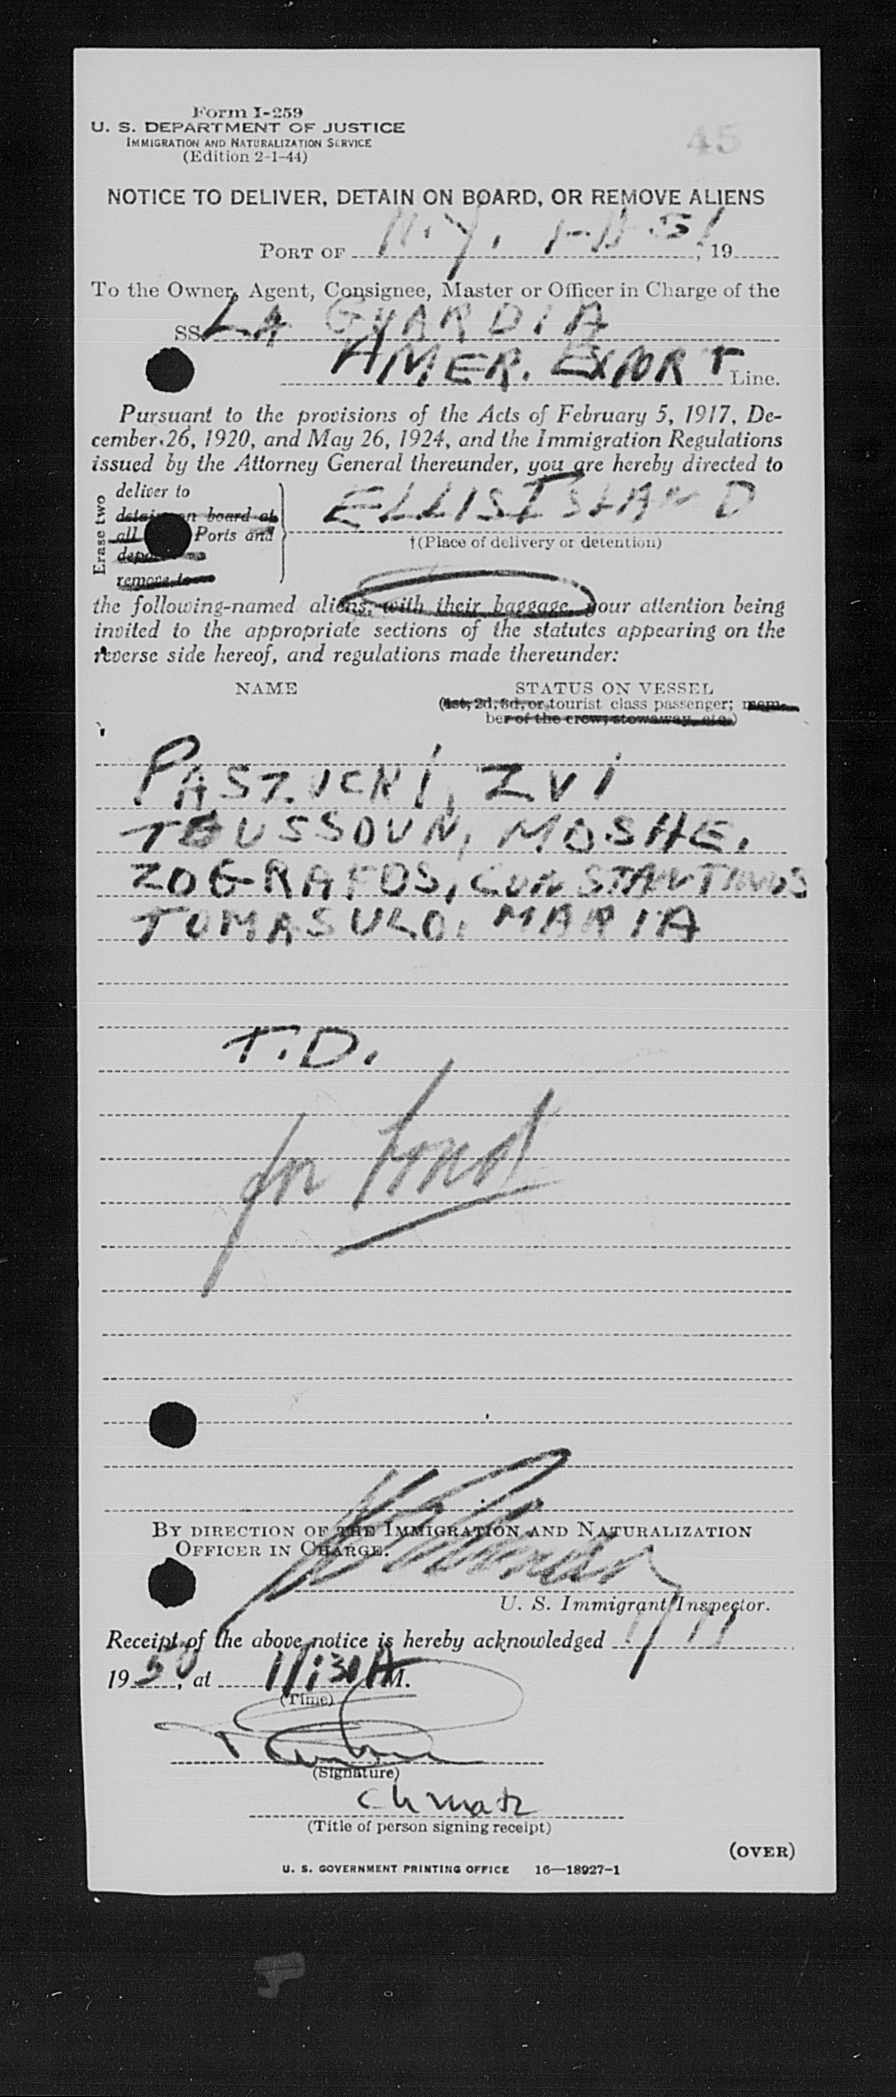 Form I-259
U. S. DEPARTMENT OF JUSTICE
IMMIGRATION AND NATURALIZATION SERVICE
(Edition 2-1-44)
45
NOTICE TO DELIVER, DETAIN ON BOARD, OR REMOVE ALIENS
PORT OF N.Y. 1-11-51, 19
To the Owner, Agent, Consignee, Master or Officer in Charge of the
SS LA GUARDIA
AMER. EXPORT Line.
Pursuant to the provisions of the Acts of February 5, 1917, De-
cember 26, 1920, and May 26, 1924, and the Immigration Regulations
issued by the Attorney General thereunder, you are hereby directed to
Erase two
deliver to
detain on board at
all Ports and
remove to
ELLIS ISLAND
†(Place of delivery or detention)
the following-named aliens, with their baggage, your attention being
invited to the appropriate sections of the statutes appearing on the
reverse side hereof, and regulations made thereunder:
NAME STATUS ON VESSEL
(1st, 2d, 3d, or tourist class passenger; mem-
ber of the crew, stowaway, etc.)
PASZUCNI, ZVI
TOUSSOUN, MOSHE.
ZOGRAFOS, CONSTANTINOS
TOMASULO, MARIA
T.D.
for bond
BY DIRECTION OF THE IMMIGRATION AND NATURALIZATION
OFFICER IN CHARGE:
U. S. Immigrant Inspector.
Receipt of the above notice is hereby acknowledged 1/11
1950, at 11:30 A M.
(Time)
(Signature)
(Title of person signing receipt)
(OVER)
U. S. GOVERNMENT PRINTING OFFICE 16—18927-1